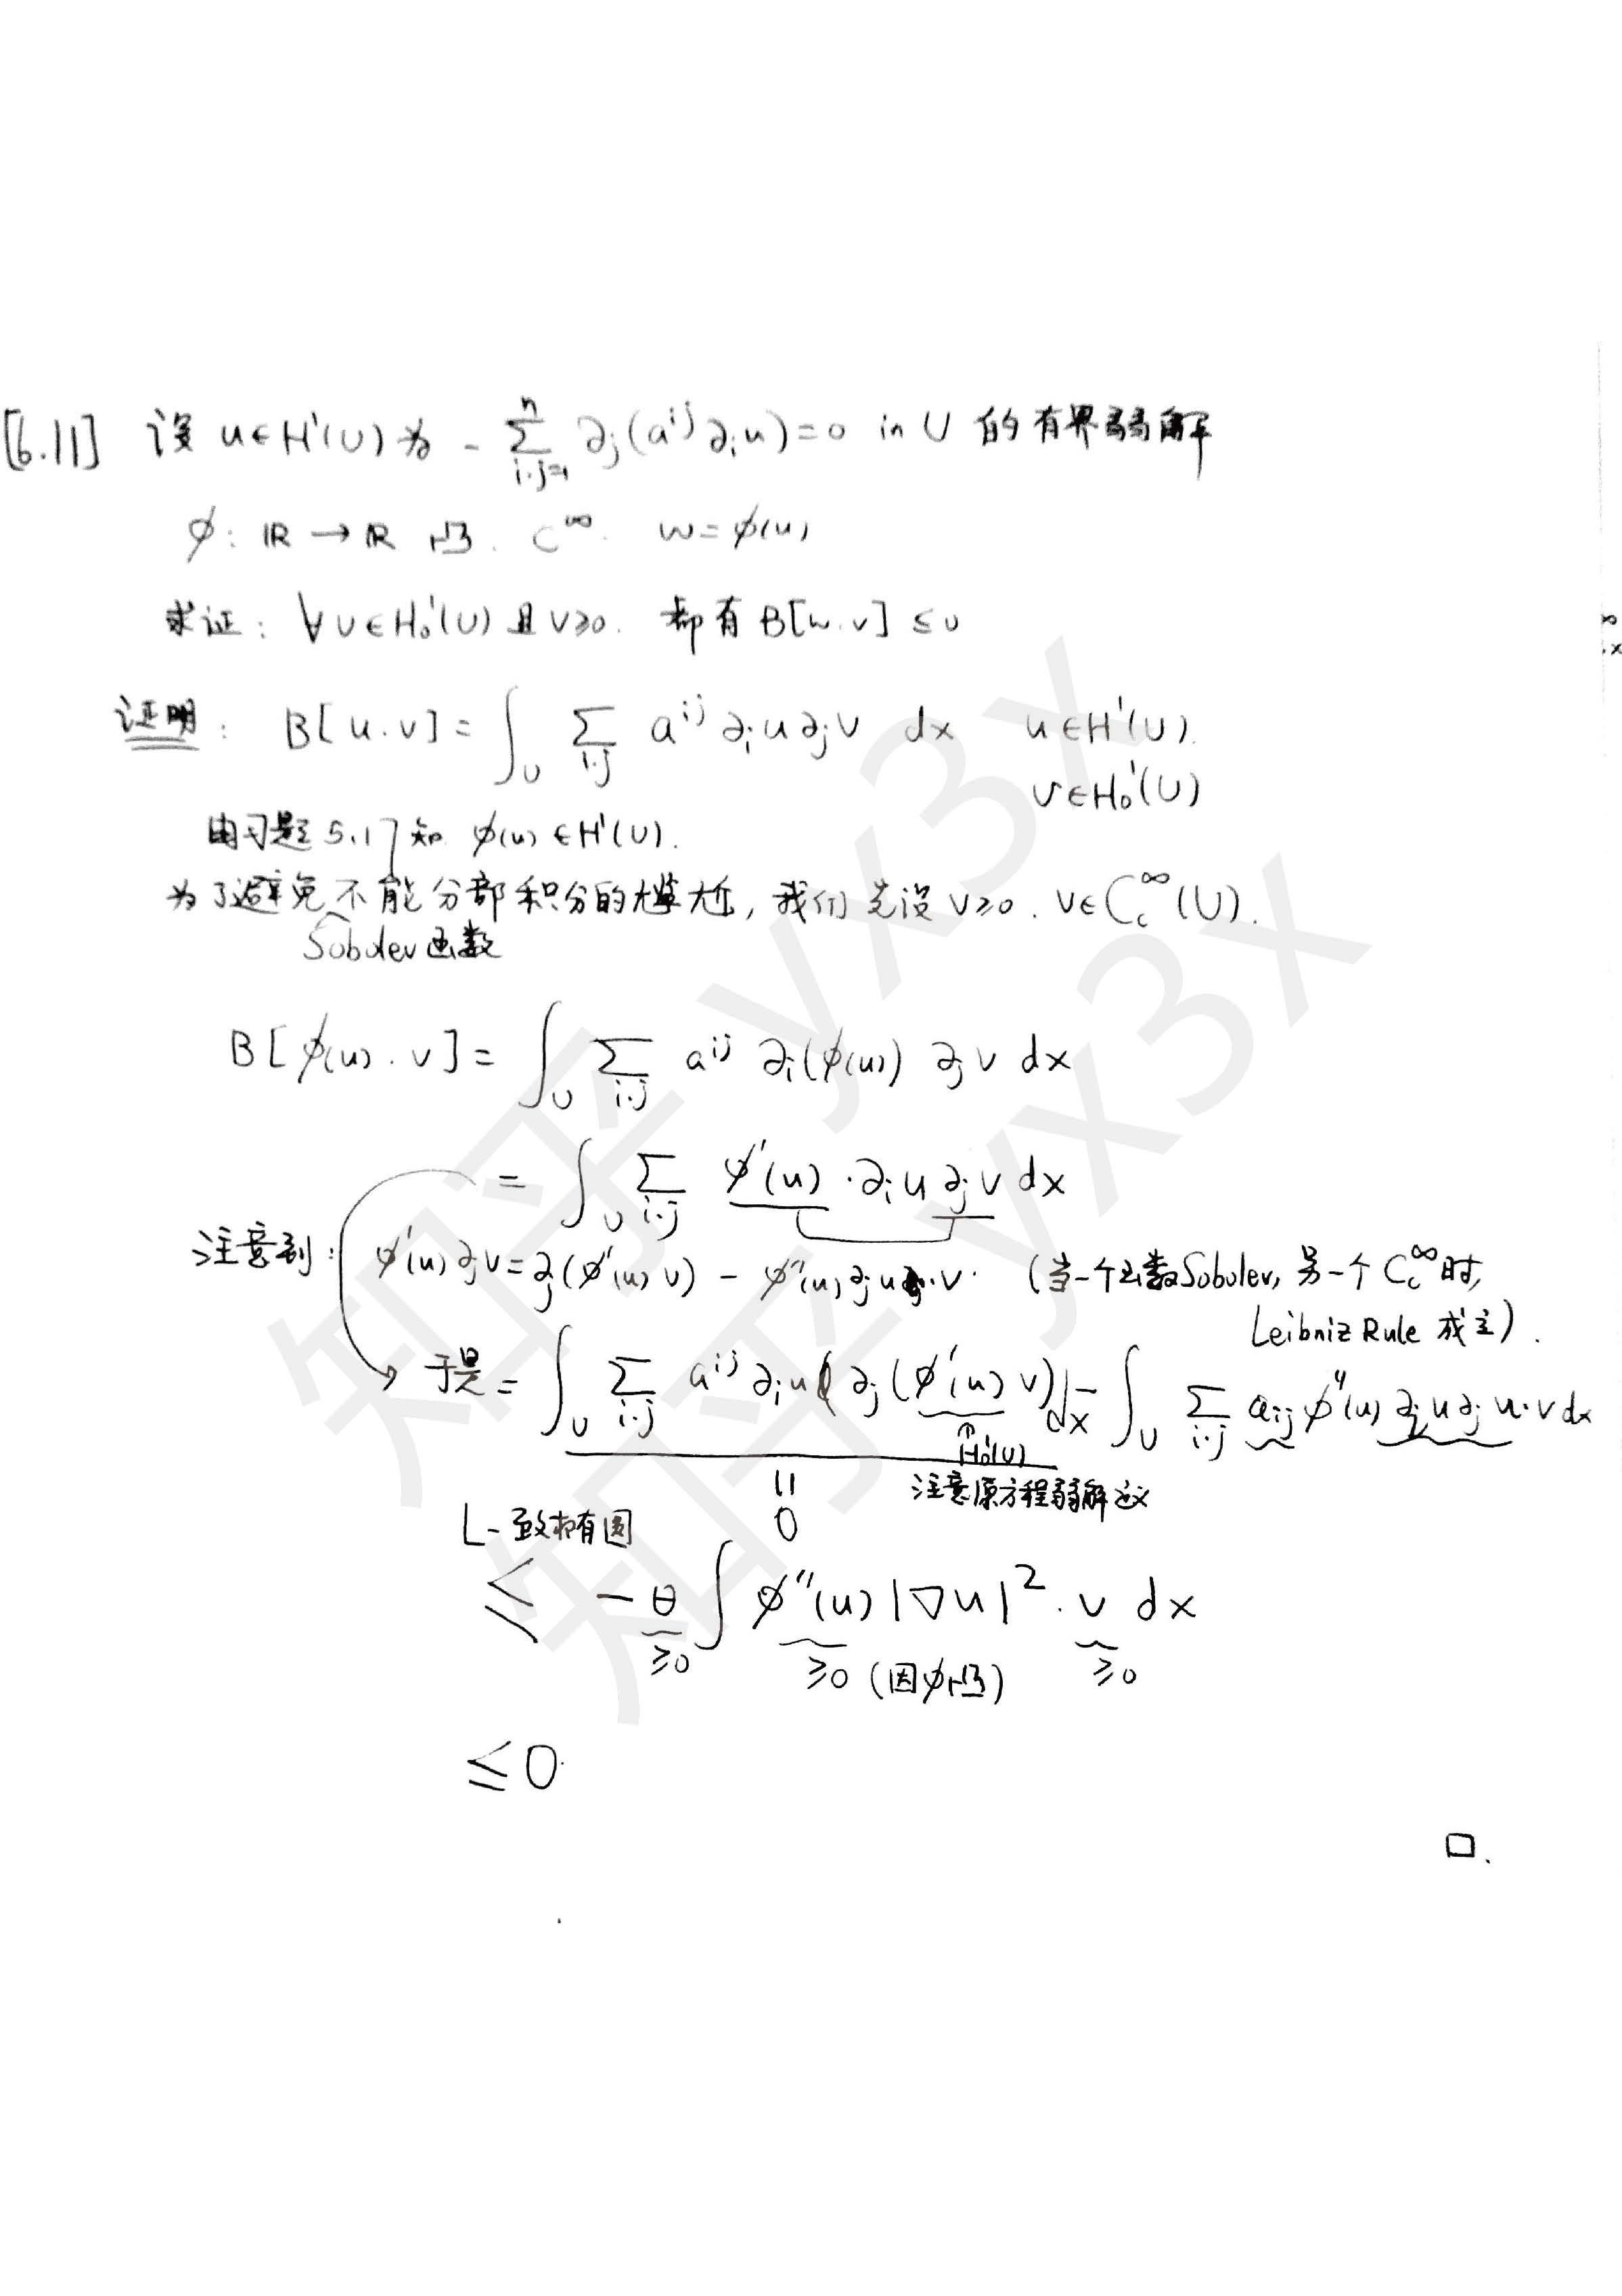 [6.11] 设 u∈H¹(U) 为 - ∑_{i,j=1}^{n} ∂_j(a^{ij} ∂_i u)=0 in U 的有界弱解
ϕ: ℝ → ℝ 凸. C^∞. w=ϕ(u)
求证: ∀v∈H₀¹(U) 且 v≥0. 都有 B[w.v] ≤0
证明: B[u.v] = ∫_U ∑_{i,j} a^{ij} ∂_i u ∂_j v dx u∈H¹(U).
v∈H₀¹(U)
由习题 5.17 知 ϕ(u) ∈H¹(U).
为了避免不能分部积分的尴尬, 我们先设 v≥0. v∈C_c^∞(U).
Sobolev 函数
B[ϕ(u).v] = ∫_U ∑_{i,j} a^{ij} ∂_i(ϕ(u)) ∂_j v dx
= ∫_U ∑_{i,j} ϕ'(u) · ∂_i u ∂_j v dx
注意到: ϕ'(u) ∂_j v = ∂_j(ϕ'(u) v) - ϕ''(u) ∂_j u · v. (当一个函数Sobolev, 另一个 C_c^∞ 时,
Leibniz Rule 成立).
于是 = ∫_U ∑_{i,j} a^{ij} ∂_i u ∂_j(ϕ'(u) v) dx - ∫_U ∑_{i,j} a_{ij} ϕ''(u) ∂_i u ∂_j u · v dx
∈ H₀¹(U)
|| 注意原方程弱解定义
0
L一致椭圆
≤ -θ ∫ ϕ''(u) |∇u|² · v dx
≥0 ≥0 (因ϕ凸) ≥0
≤0.
□.
知乎 yx3x
知乎 yx3x